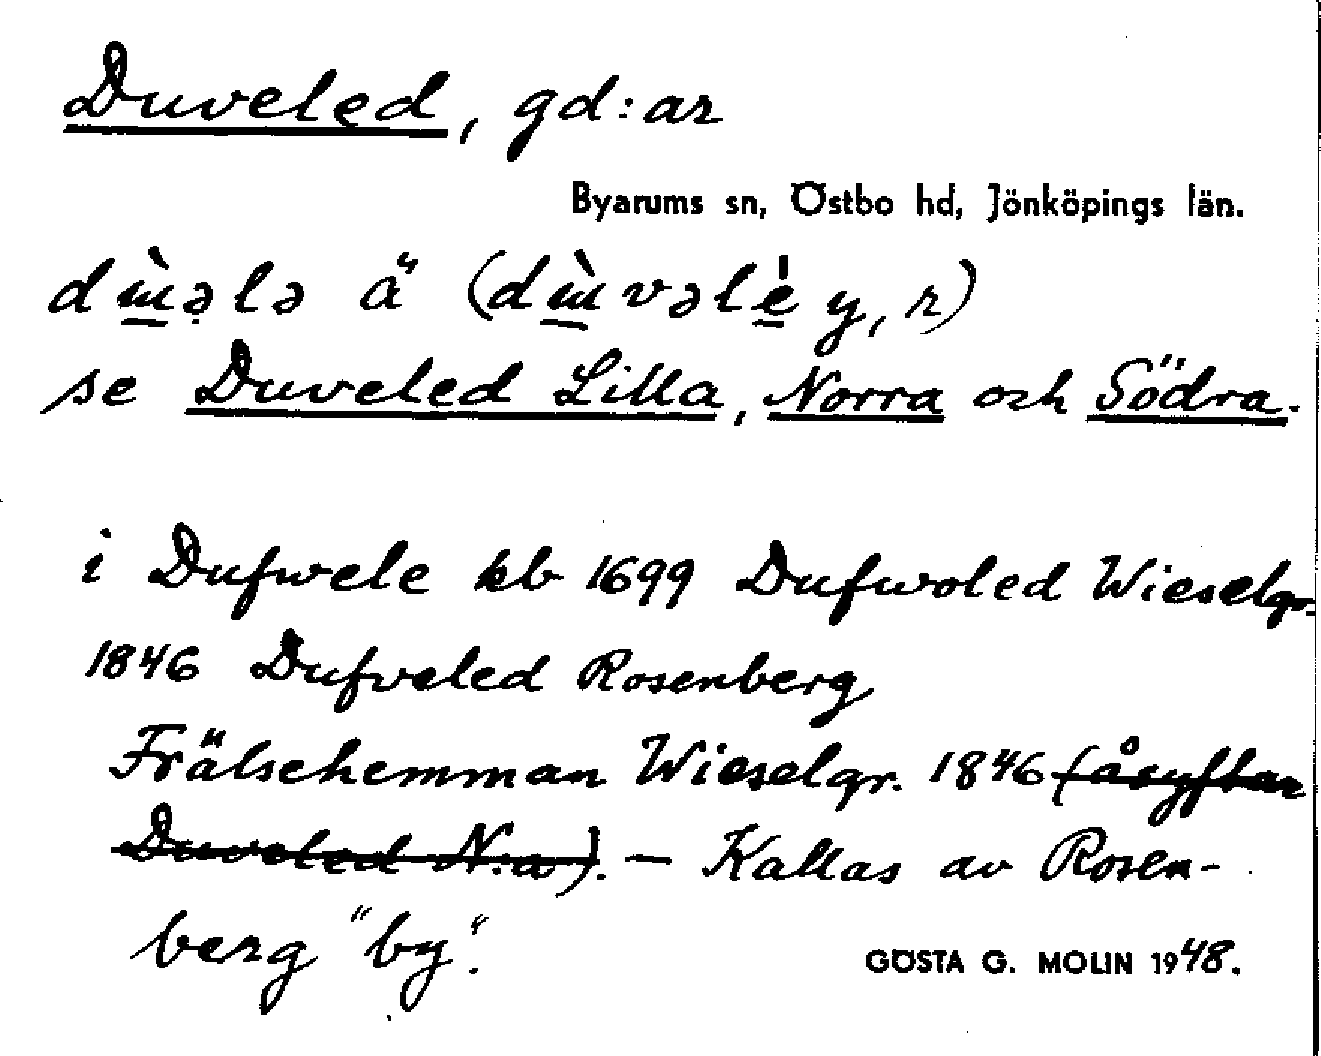 Duveled, gd:ar
Byarums sn, Östbo hd, Jönköpings län.
dɯ̀ələ ä (dɯ̀vəlé y, r)
se Duveled Lilla, Norra och Södra.
i Dufwele kb 1699 Dufwoled Wieselgr.
1846 Dufveled Rosenberg
Frälsehemman Wieselgr. 1846 (åsyftar
Duveled N:a). — Kallas av Rosen-
berg "by".
GÖSTA G. MOLIN 1948.